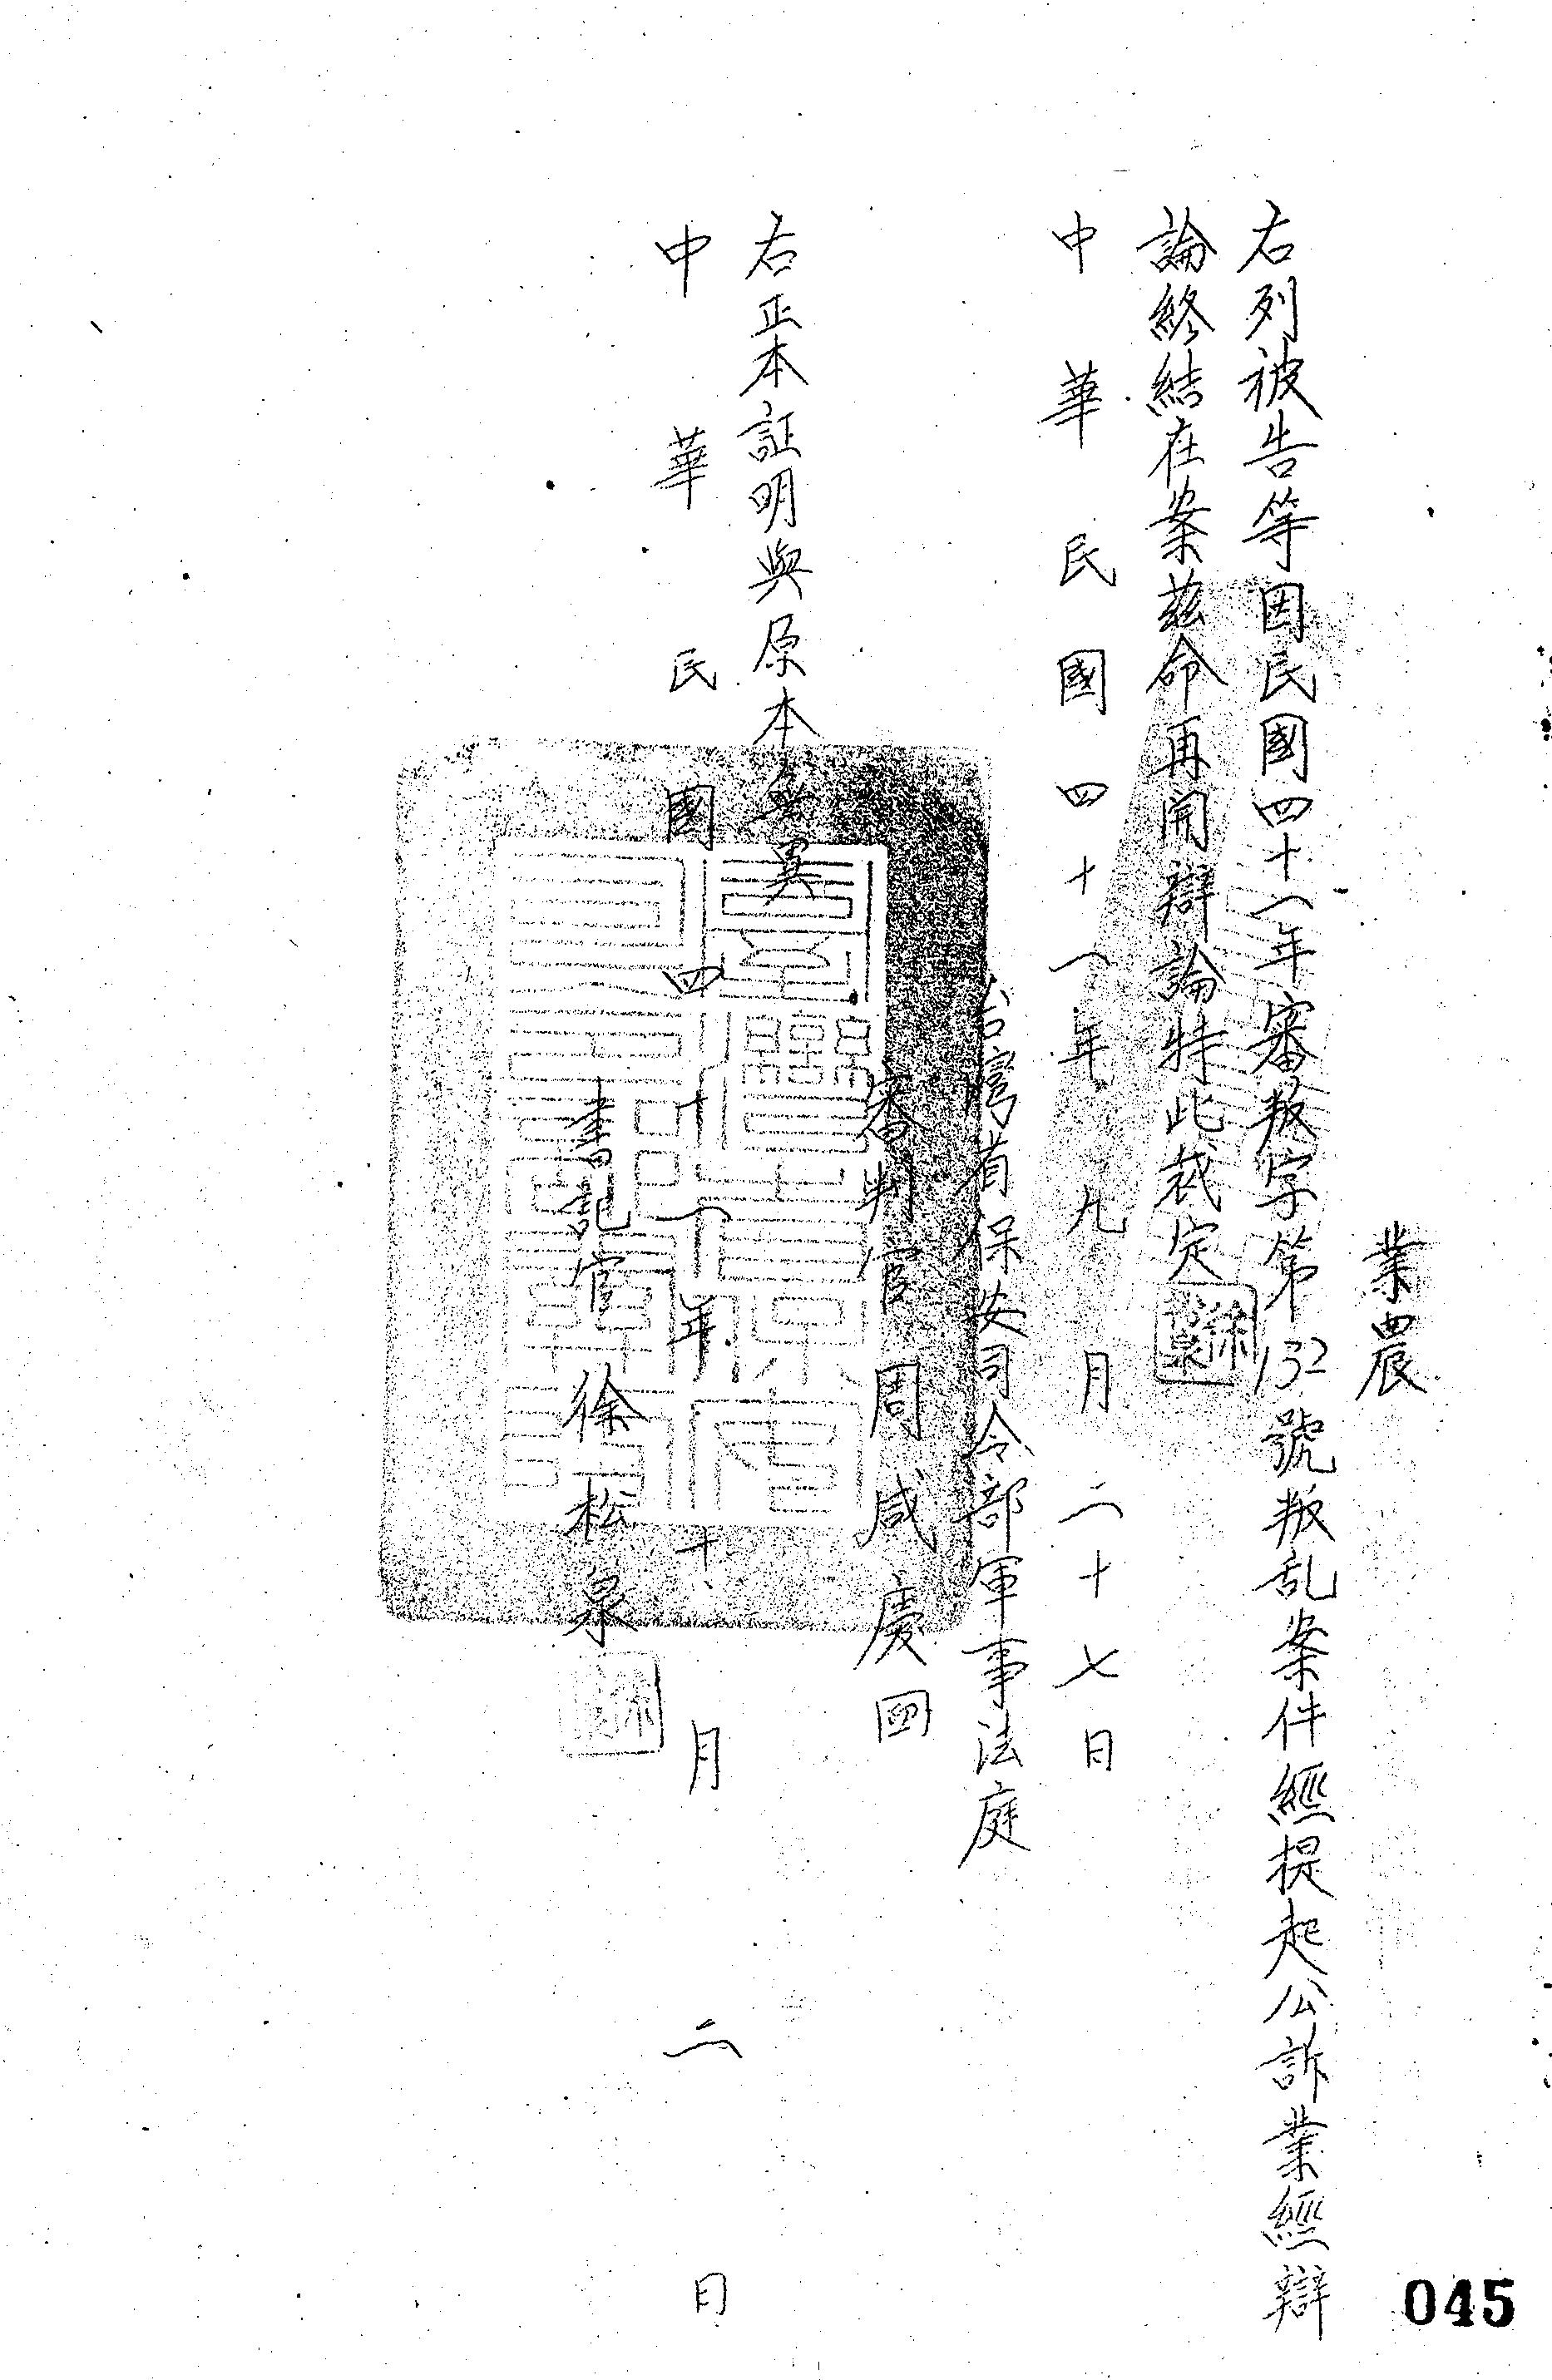 業農
右列被告等因民國四十一年審叛字第132號叛乱案件經提起公訴業經辯
論終結在案茲命再開辯論特此裁定
中華民國四十一年九月二十七日
台灣省保安司令部軍事法庭
審判官周咸慶
右正本証明與原本無異
中華民國四十一年十月二日
書記官徐松泉
045